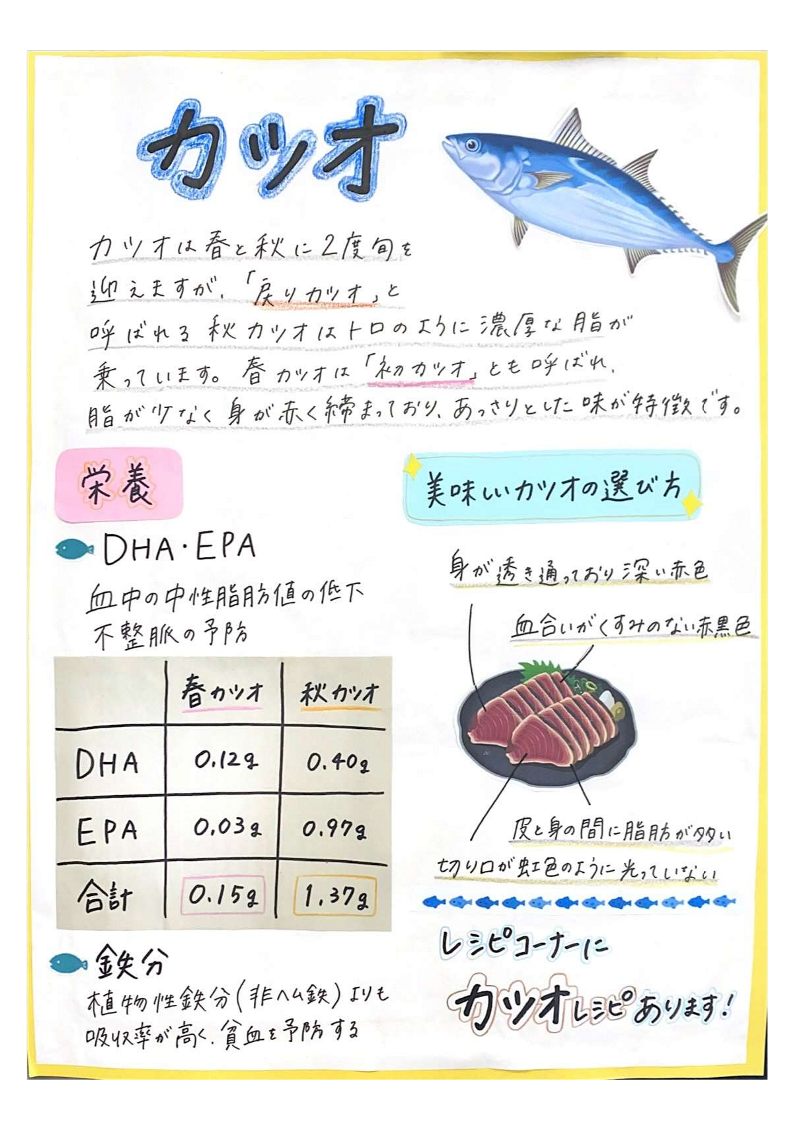 カツオ
カツオは春と秋に2度旬を
迎えますが、「戻りカツオ」と
呼ばれる秋カツオはトロのように濃厚な脂が
乗っています。春カツオは「初カツオ」とも呼ばれ、
脂が少なく身が赤く締まっており、あっさりとした味が特徴です。
栄養
DHA・EPA
血中の中性脂肪値の低下
不整脈の予防
春カツオ 秋カツオ
DHA 0.12g 0.40g
EPA 0.03g 0.97g
合計 0.15g 1.37g
鉄分
植物性鉄分(非ヘム鉄)よりも
吸収率が高く、貧血を予防する
美味しいカツオの選び方
身が透き通っており深い赤色
血合いがくすみのない赤黒色
皮と身の間に脂肪が多い
切り口が虹色のように光っていない
レシピコーナーに
カツオレシピあります!